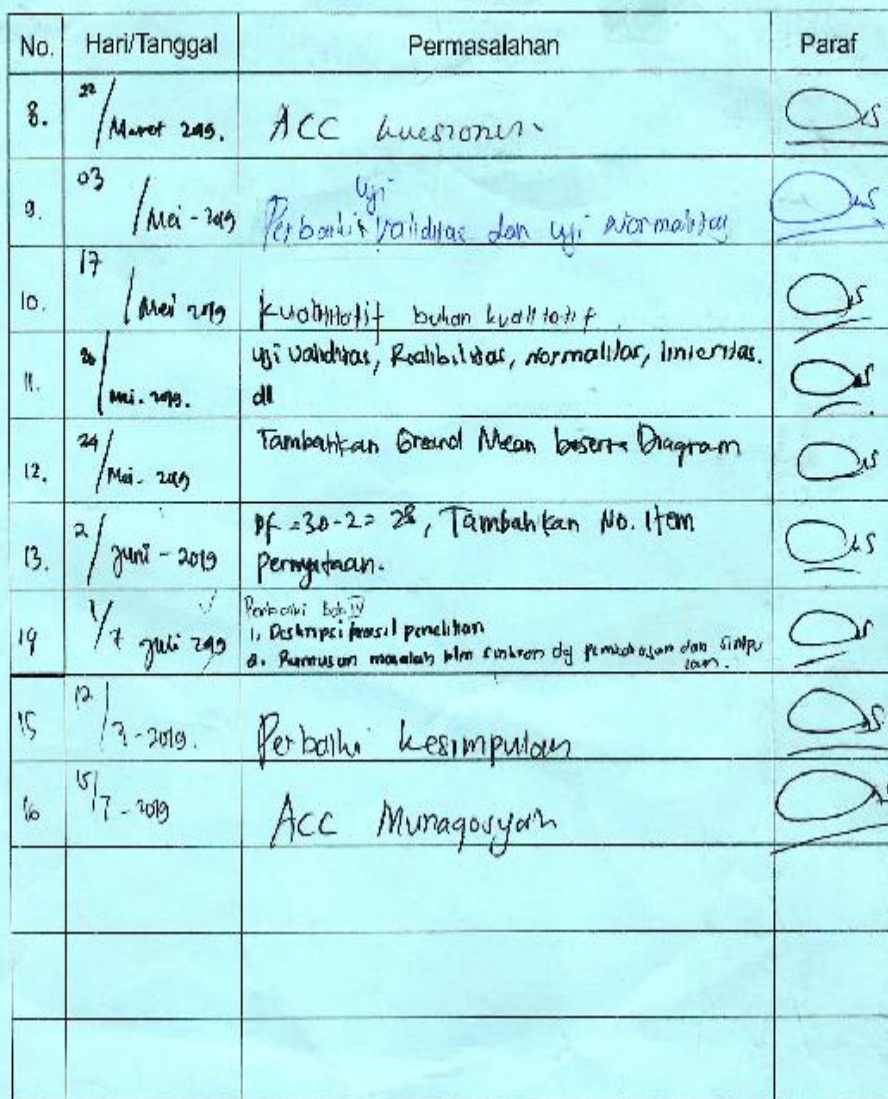 No. Hari/Tanggal Permasalahan Paraf
8. 22/Maret 2019. ACC kuesioner
9. 03/Mei - 2019 Perbaiki uji validitas dan uji Normalitas
10. 17/Mei 2019 kuantitatif bukan kualitatif.
11. /Mei. 2019. uji validitas, Realibilitas, Normalitas, linieritas.
dll
12. 24/Mei - 2019 Tambahkan Grand Mean beserta Diagram
13. 2/Juni - 2019 Df = 30-2 = 28, Tambahkan No. Item
Pernyataan.
14 1/7 Juli 2019 Perbaiki Bab IV
1. Deskripsi hasil penelitian
2. Rumusan masalah blm sinkron dg pembahasan dan simpu
lan.
15 12/7-2019. Perbaiki kesimpulan
16 15/7-2019 ACC Munaqosyah